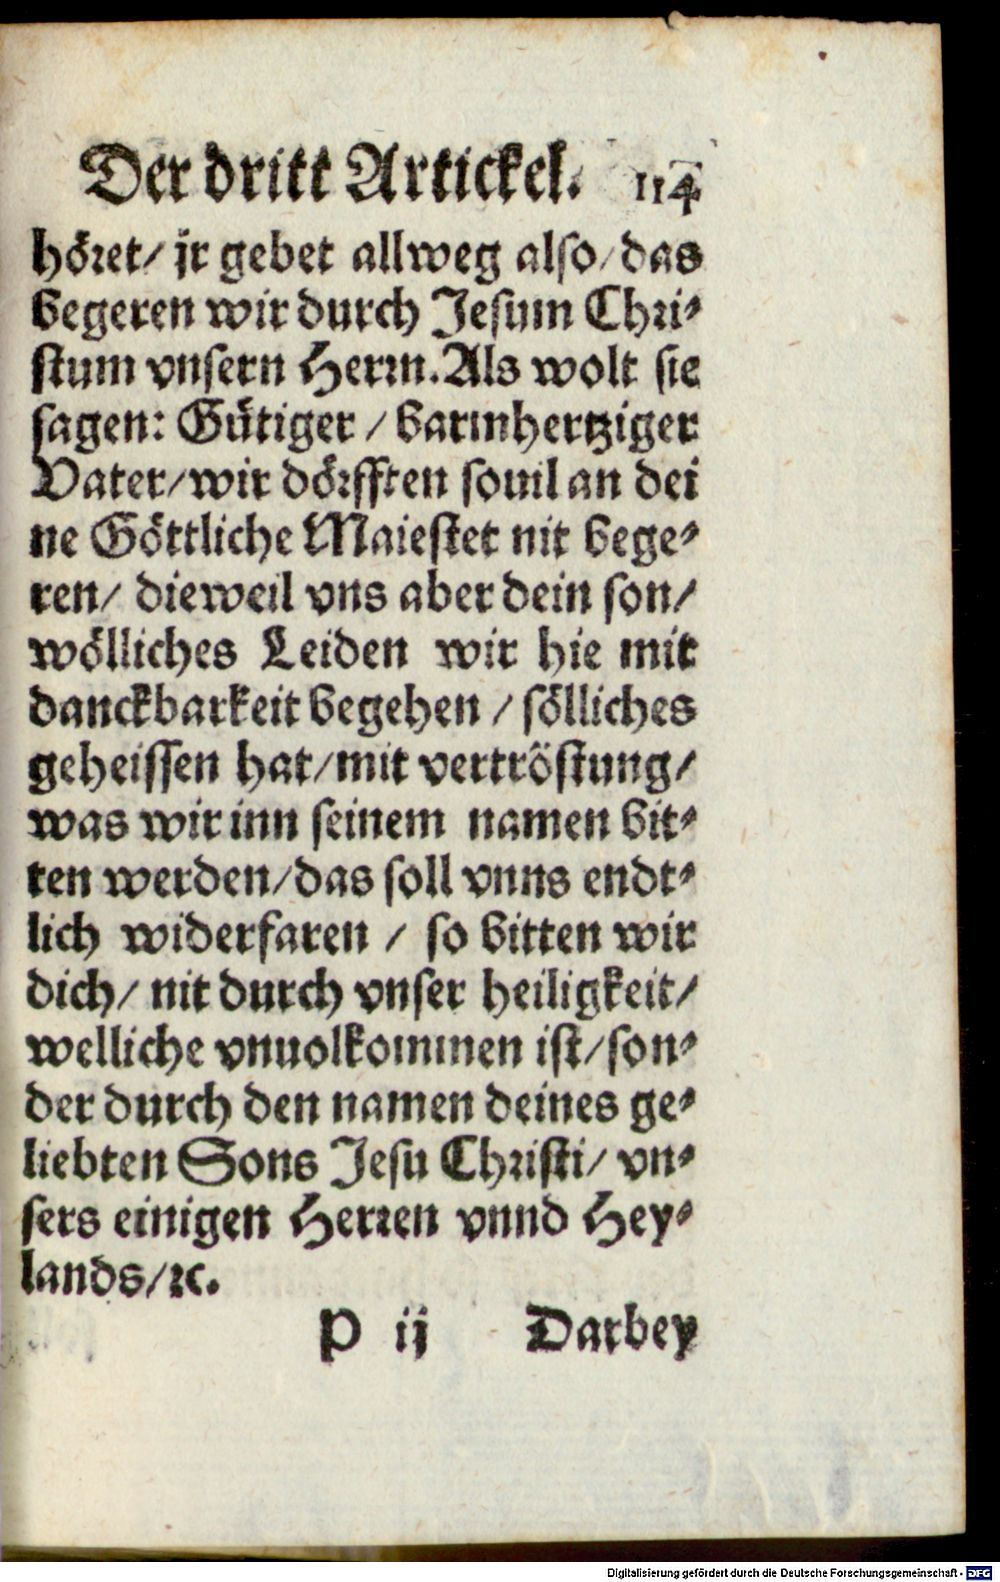 Der dritt Artickel. 114
höret/ jr gebet allweg also/ das
begeren wir durch Jesum Chri⸗
stum vnsern Herrn. Als wolt sie
sagen: Gütiger / barmhertziger
Vater/ wir dörfften souil an dei
ne Göttliche Maiestet nit bege⸗
ren/ dieweil vns aber dein son/
wölliches Leiden wir hie mit
danckbarkeit begehen / sölliches
geheissen hat/ mit vertröstung/
was wir inn seinem namen bit⸗
ten werden/ das soll vnns endt⸗
lich widerfaren / so bitten wir
dich/ nit durch vnser heiligkeit/
welliche vnuolkommen ist/ son⸗
der durch den namen deines ge⸗
liebten Sons Jesu Christi/ vn⸗
sers einigen Herren vnnd Hey⸗
lands/ ꝛc.
P ij Darbey
Digitalisierung gefördert durch die Deutsche Forschungsgemeinschaft - DFG